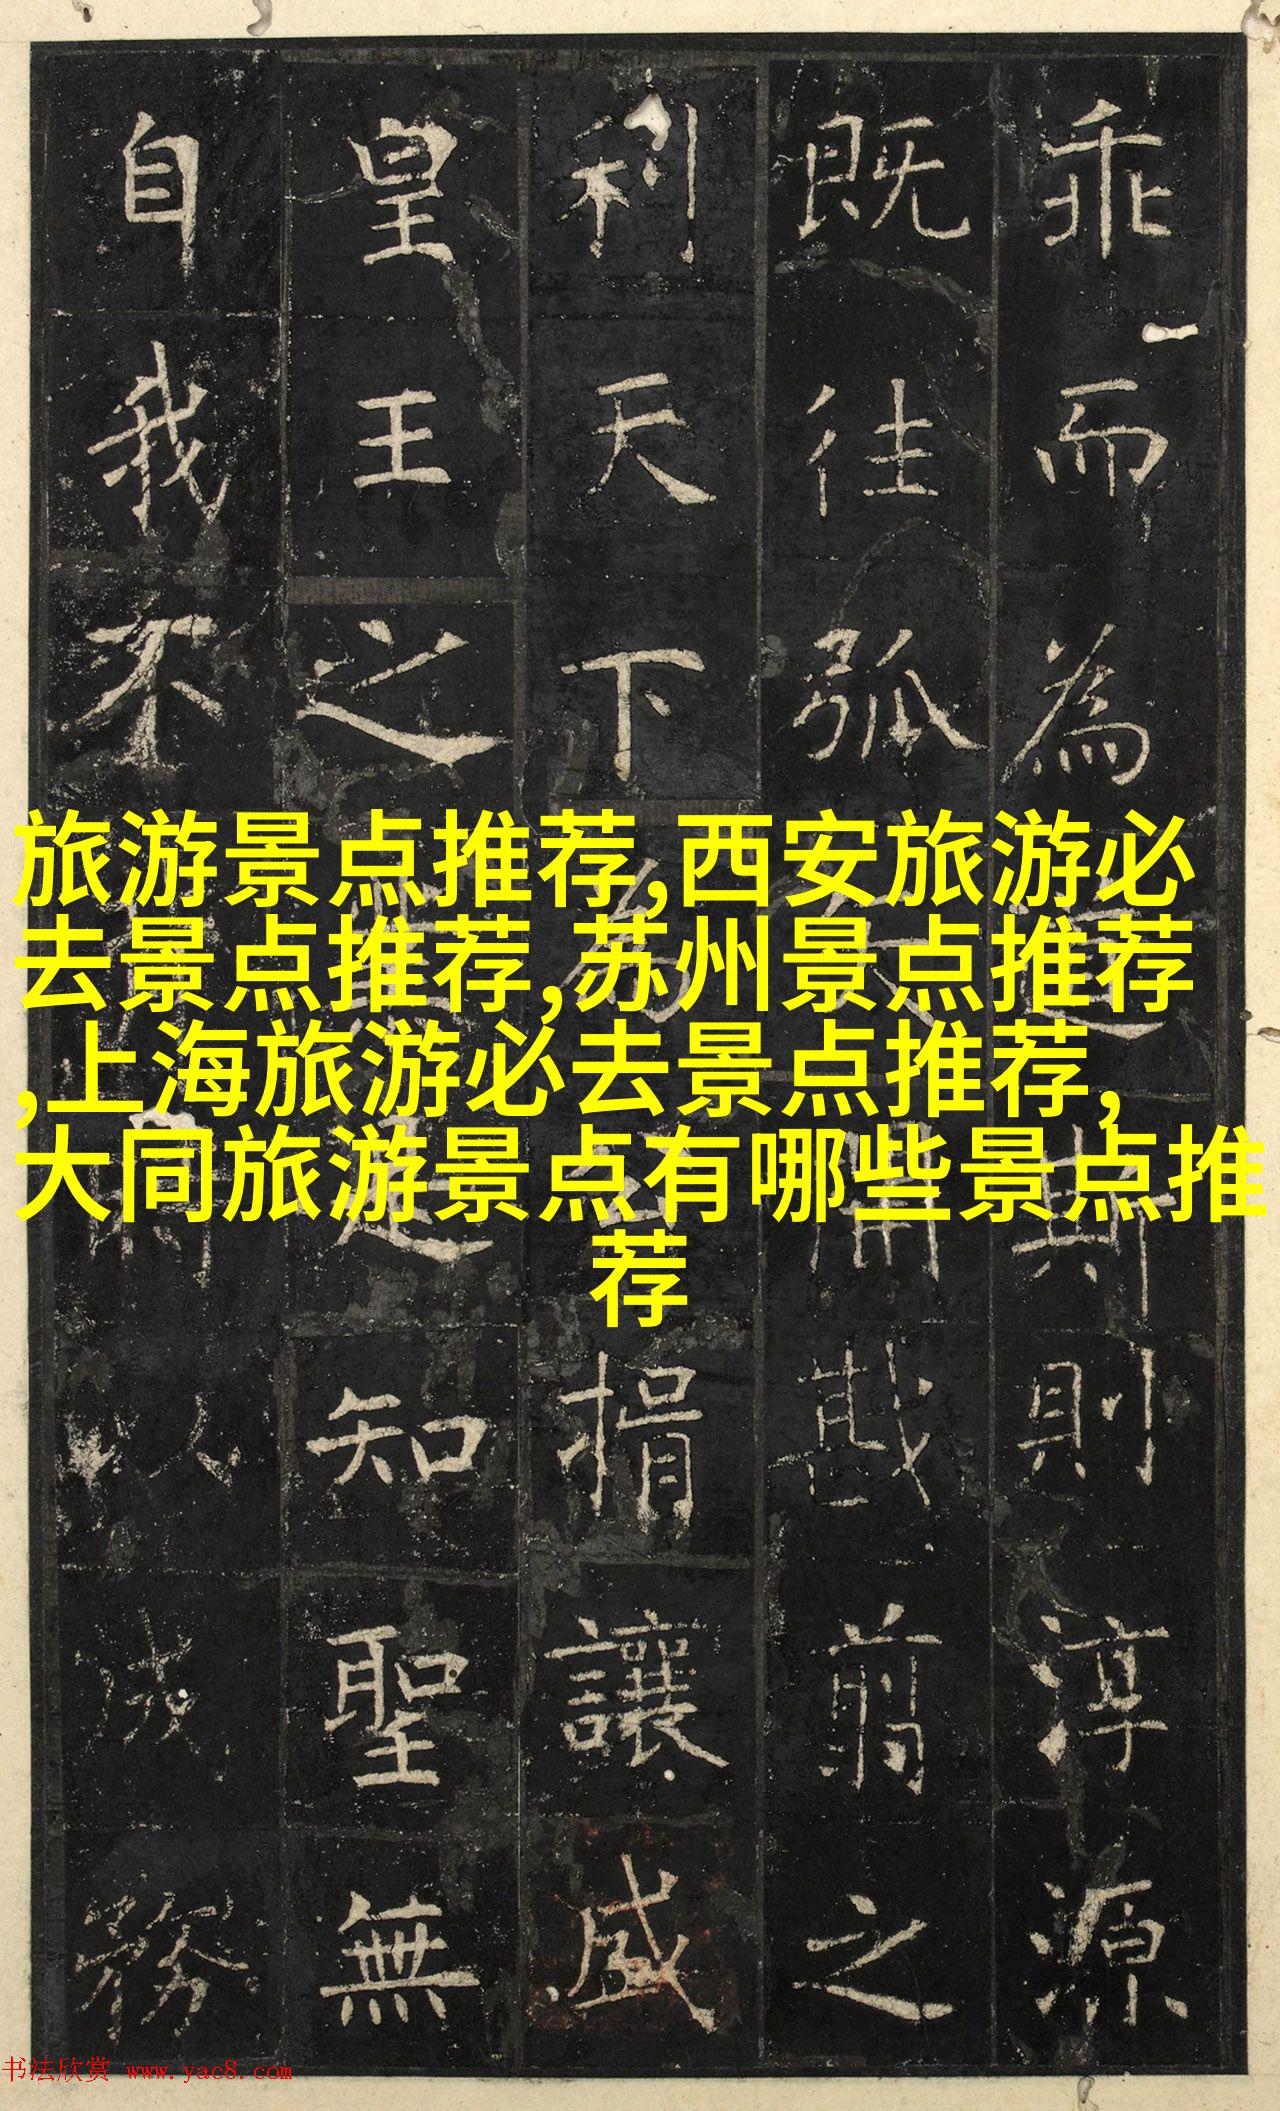 乖而為道斯則淳源
既往弧矢開戡翦之
利天下為公揖讓咸
皇王之
知聖無
自我不
務
旅游景点推荐,西安旅游必
去景点推荐,苏州景点推荐
,上海旅游必去景点推荐,
大同旅游景点有哪些景点推
荐
书法欣赏 www.yac8.com